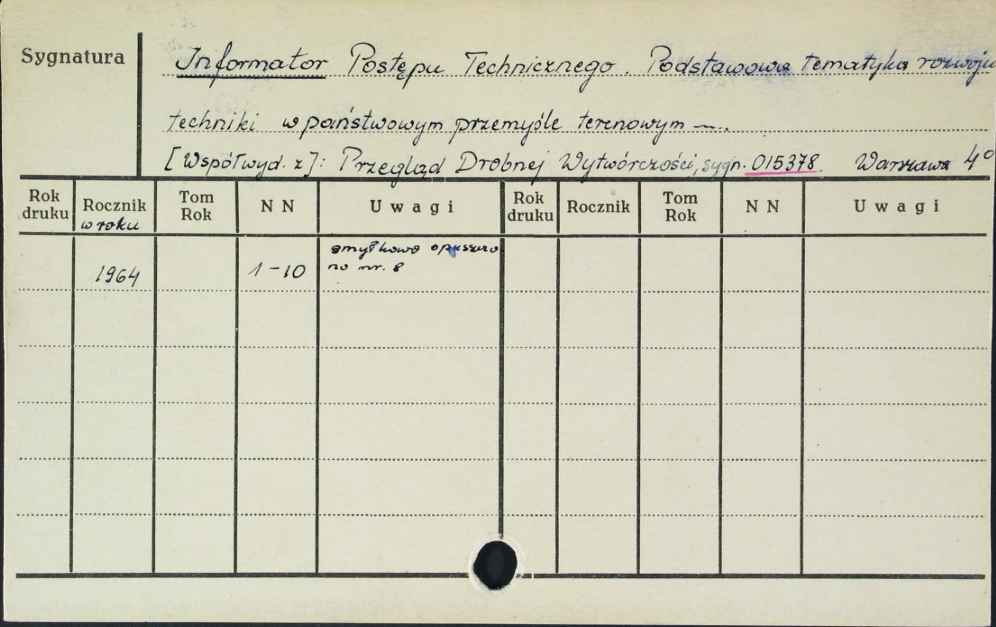 Sygnatura
Informator Postępu Technicznego. Podstawowa tematyka rozwoju
techniki w państwowym przemyśle terenowym —.
[Współwyd. z]: Przegląd Drobnej Wytwórczości, sygn. 015378 Warszawa 4°
Rok druku Rocznik w roku Tom Rok NN Uwagi Rok druku Rocznik Tom Rok NN Uwagi
1964 1-10 omyłkowo opuszczo
no nr. 8